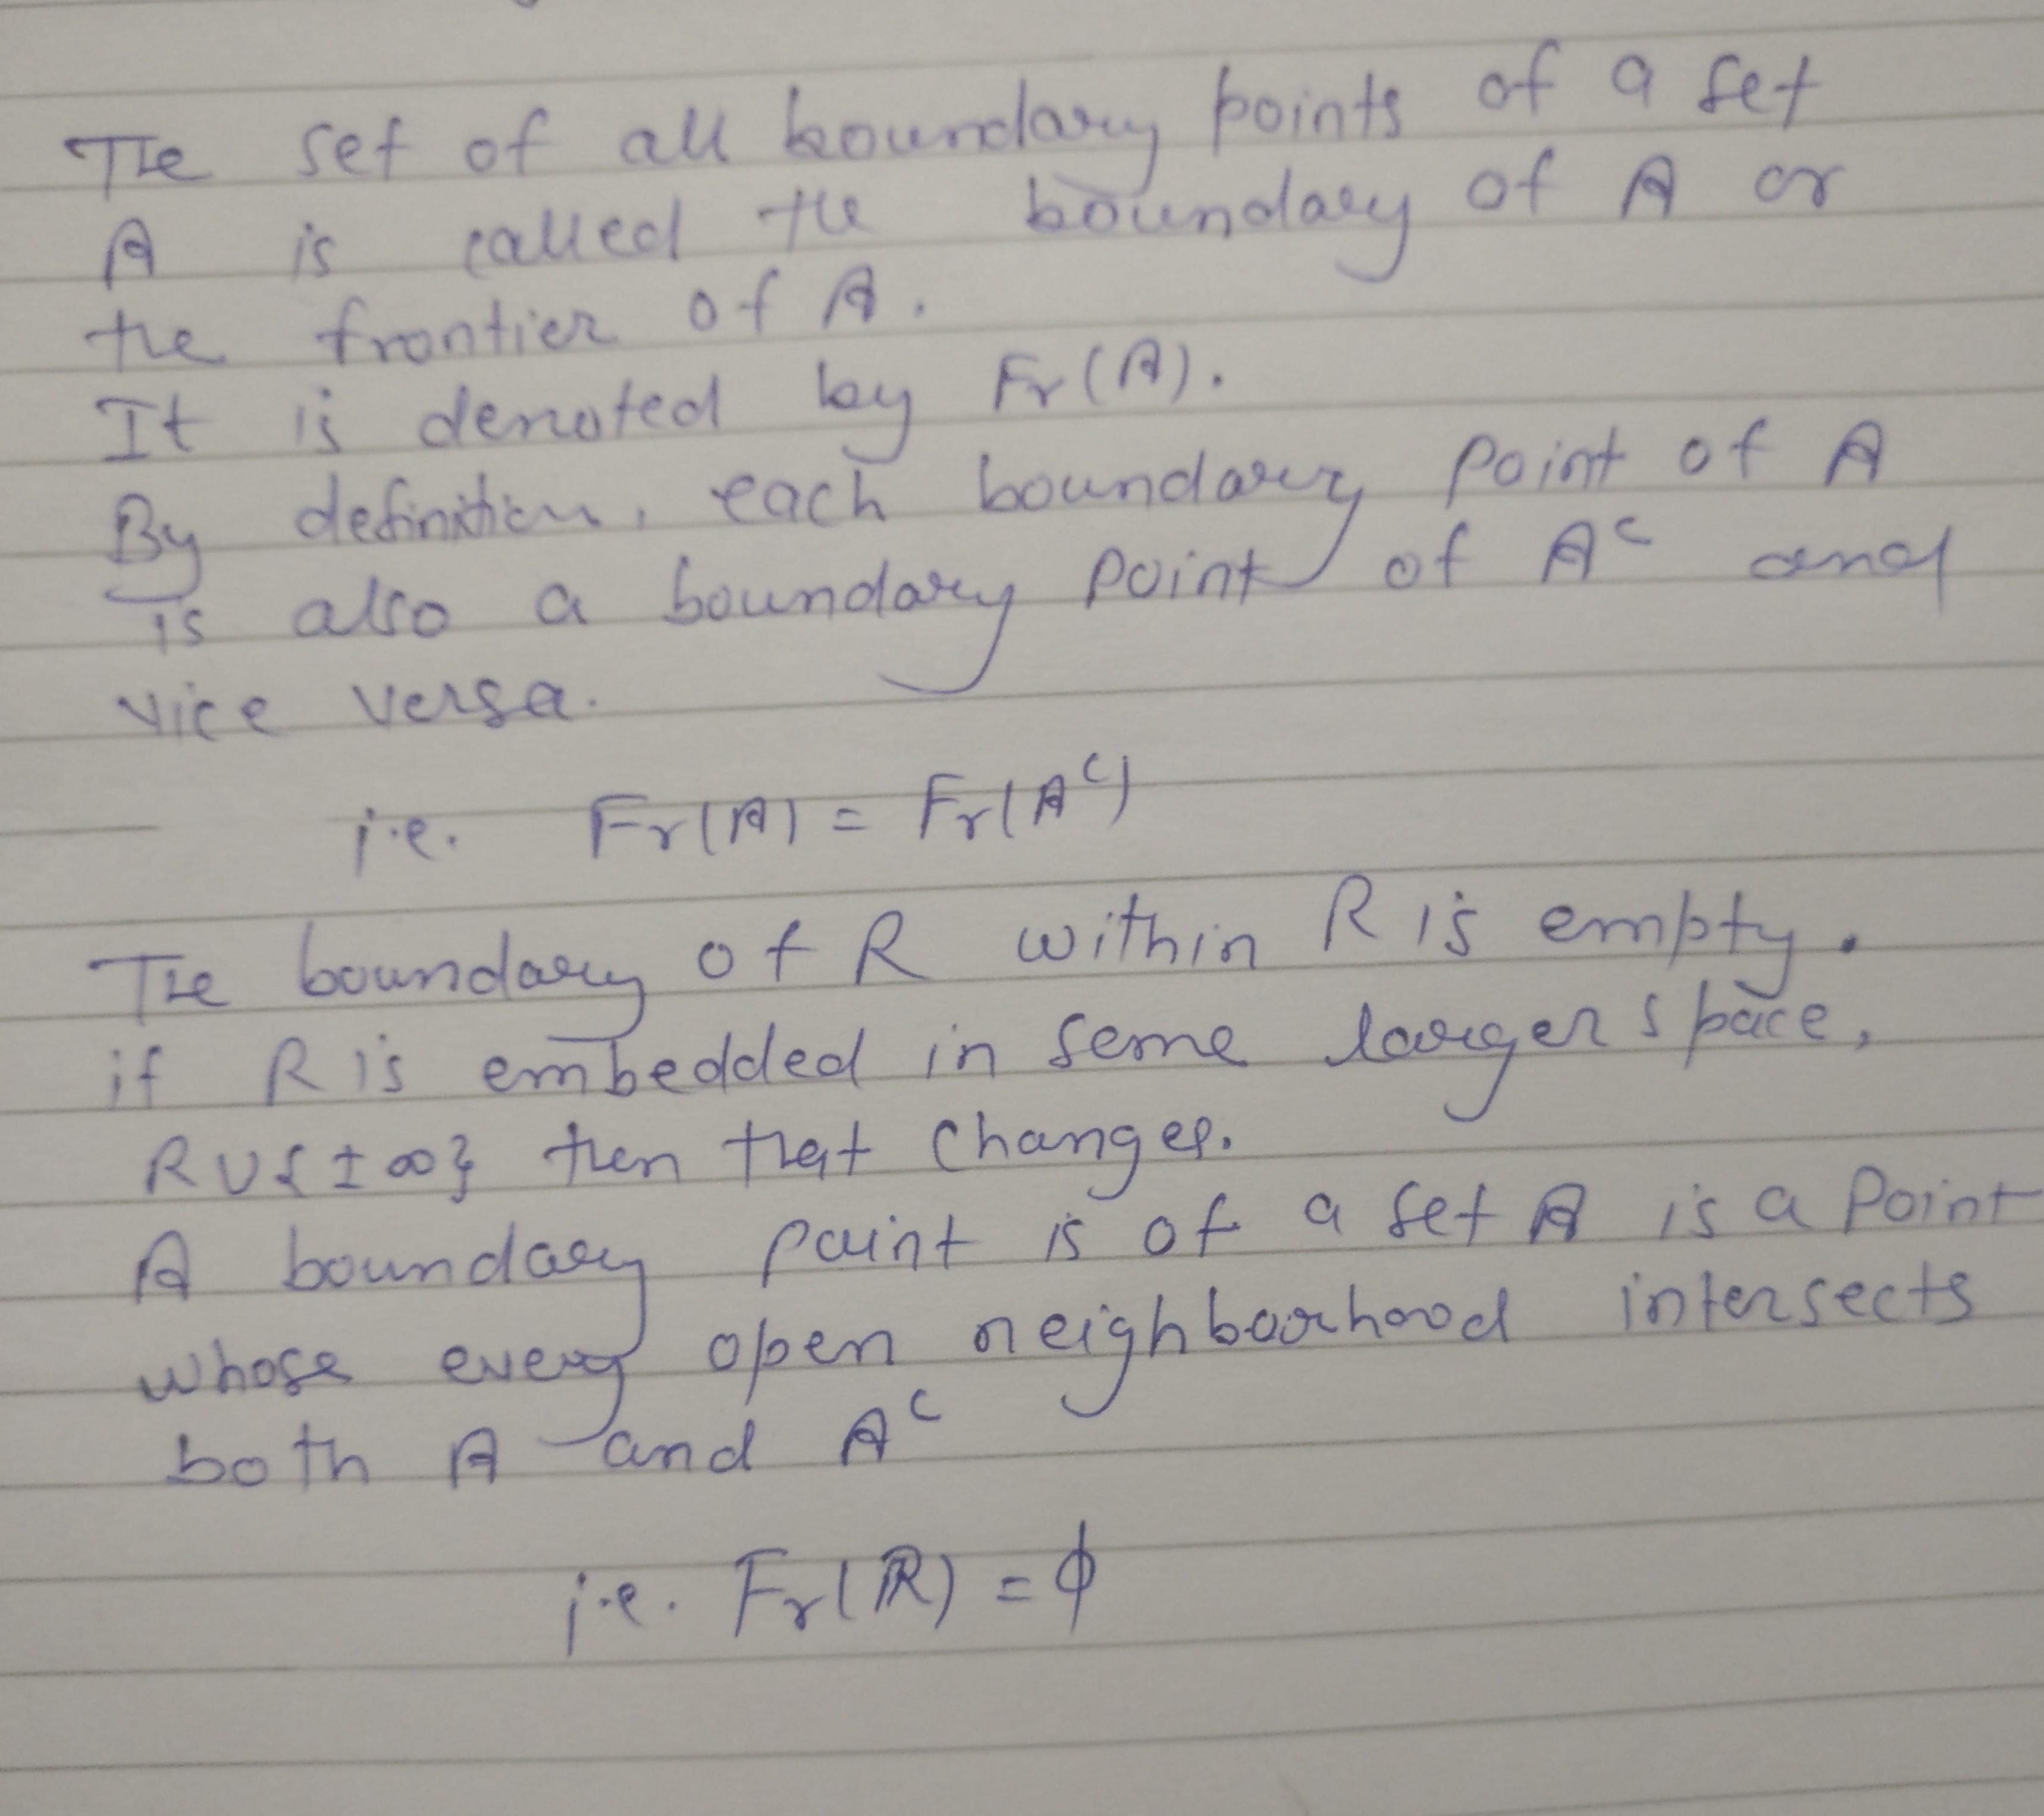 The set of all boundary points of a set
A is called the boundary of A or
the frontier of A.
It is denoted by Fr(A).
By definition, each boundary point of A
is also a boundary point of Aᶜ and
vice versa.
i.e. Fr(A) = Fr(Aᶜ)
The boundary of R within R is empty.
if R is embedded in some larger space,
R∪{±∞} then that changes.
A boundary point is of a set A is a point
whose every open neighbourhood intersects
both A and Aᶜ
i.e. Fr(ℝ) = ϕ